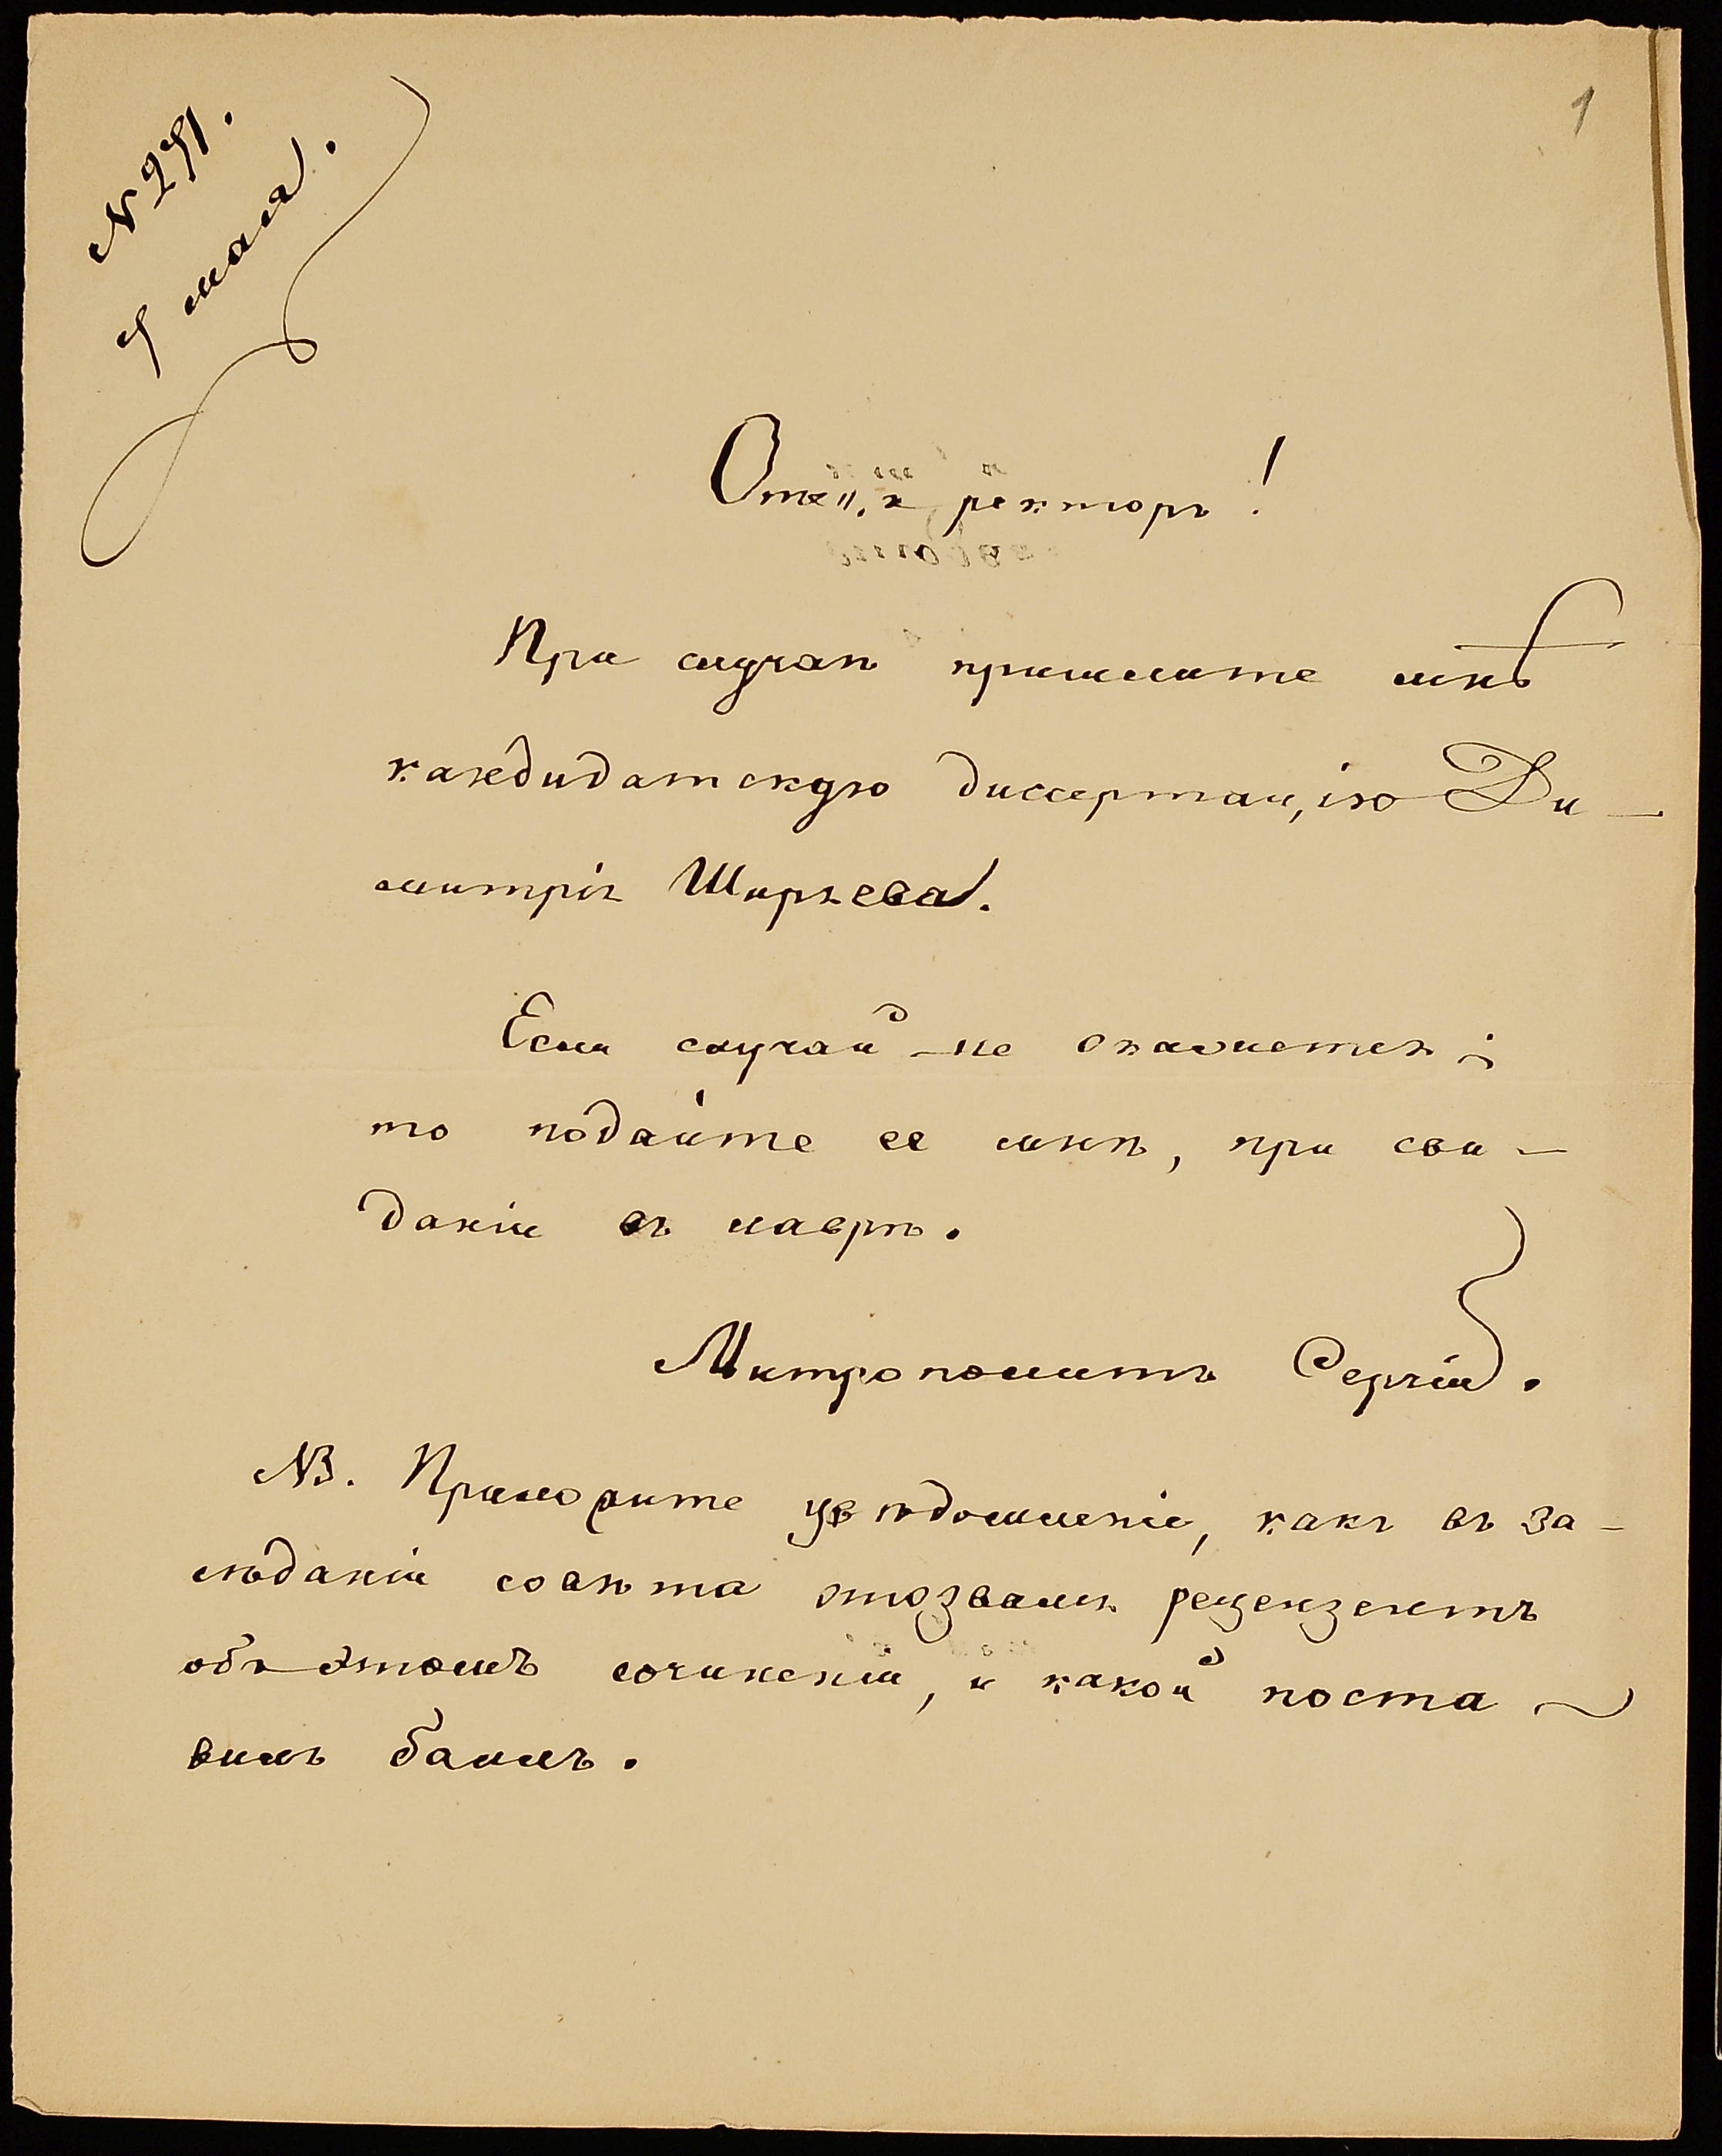 1
№ 291.
9 мая.
Отецъ ректоръ!
При случаѣ пришлите мнѣ
кандидатскую диссертацію Ди-
митрія Ширяева.
Если случай не окажется;
то подайте ее мнѣ, при сви-
даніи въ лаврѣ.
Митрополитъ Сергій.
NB. Приложите увѣдомленіе, какъ въ за-
сѣданіи совѣта отозвался рецензентъ
объ этомъ сочиненіи, и какой поста-
вилъ баллъ.